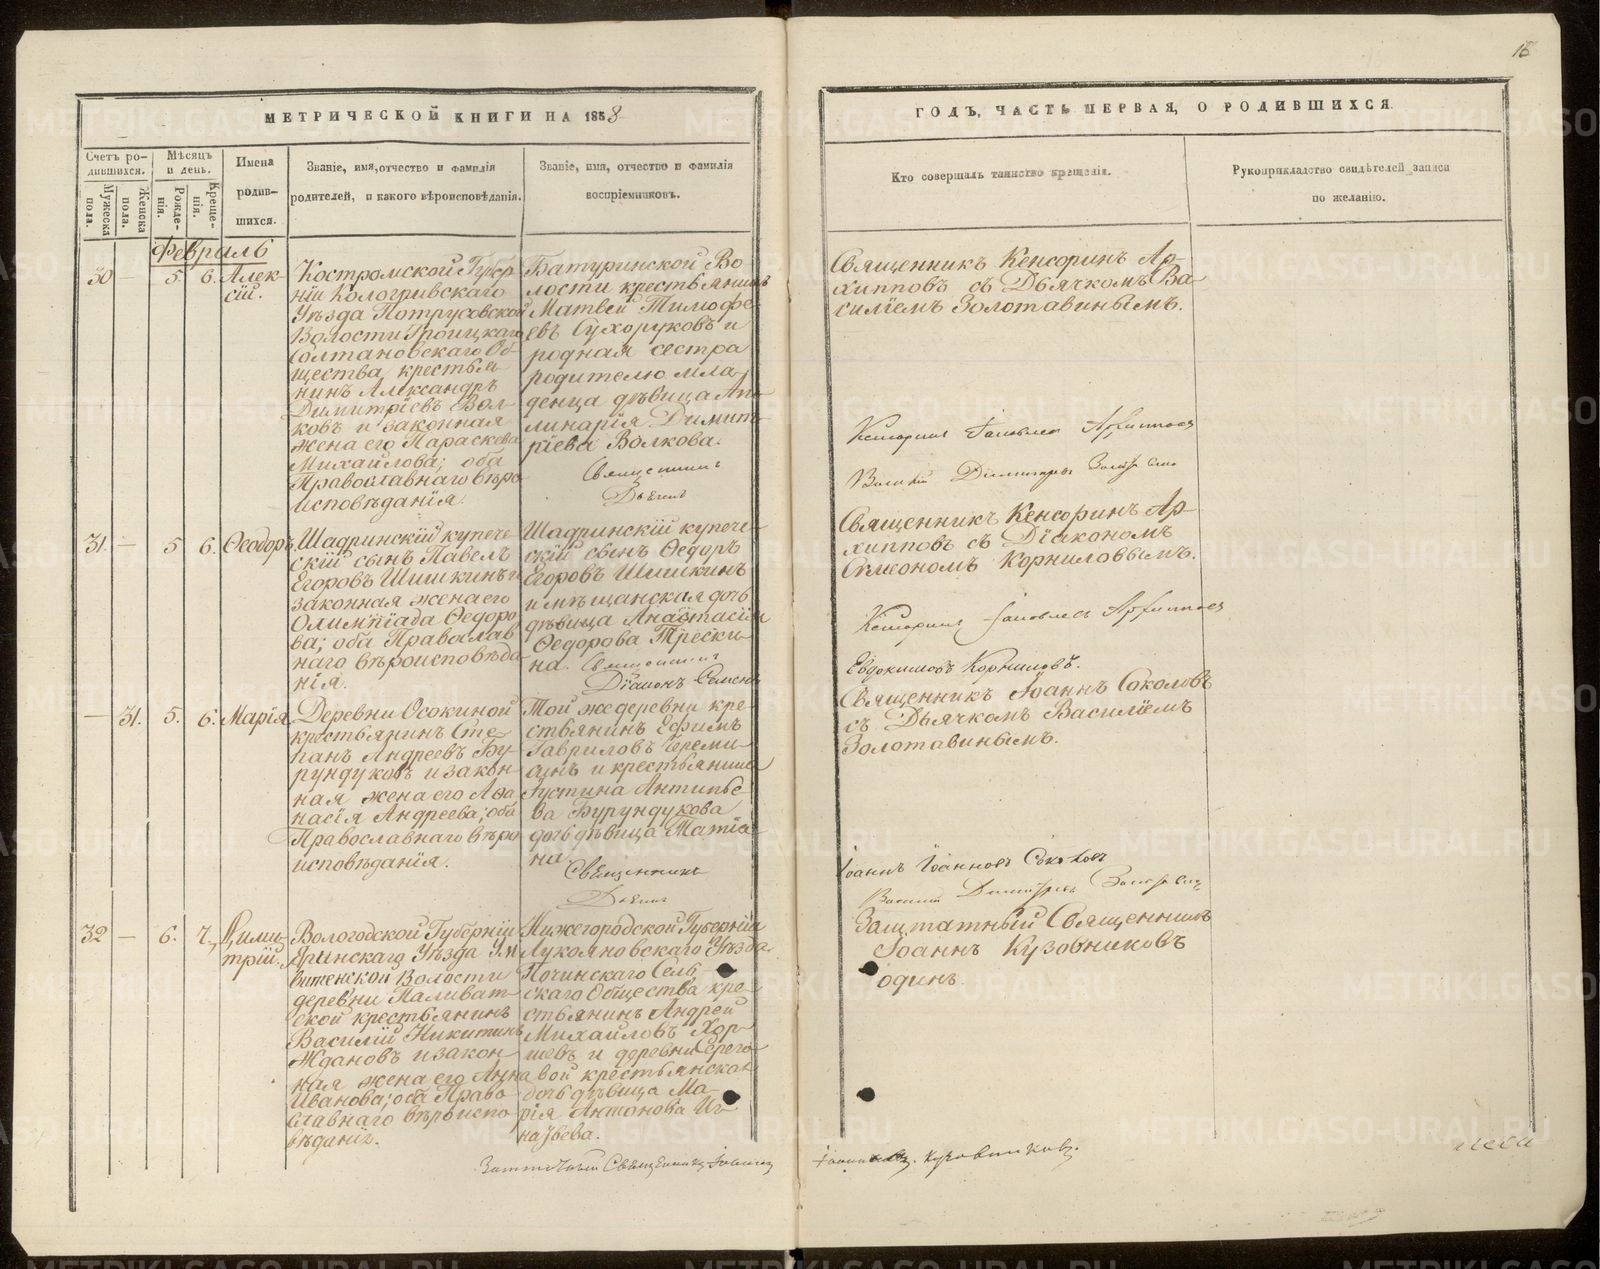 18
МЕТРИЧЕСКОЙ КНИГИ НА 1858
ГОДЪ, ЧАСТЬ ПЕРВАЯ, О РОДИВШИХСЯ.
Счетъ ро-
дившихся.
Мужеска
пола.
Женска
пола.
Мѣсяцъ
и день.
Рожде-
нія.
Креще-
нія.
Имена
родив-
шихся.
Званіе, имя, отчество и фамилія
родителей, и какого вѣроисповѣданія.
Званіе, имя, отчество и фамилія
воспріемниковъ.
Кто совершалъ таинство крещенія.
Рукоприкладство свидѣтелей записи
по желанію.
Февраль
30 — 5. 6. Алек-
сій.
Костромской Губер-
ніи Кологривскаго
Уѣзда Потрусовской
Волости Троицкаго
Солтановскаго Об-
щества, крестья-
нинъ Александръ
Димитріевъ Вол-
ковъ и законная
жена его Параскева
Михайлова; оба
Православнаго вѣро-
исповѣданія.
Батуринской Во
лости крестьянинъ
Матвей Тимофе-
евъ Сухоруковъ и
родная сестра
родителю мла-
денца дѣвица Апо
линарія Димит-
ріева Волкова.
Священникъ
Дьячекъ
Священникъ Кенсоринъ Ар-
хипповъ съ Дьячкомъ Ва-
силіемъ Золотавинымъ.
Кенсоринъ Архипповъ
Василій Золотавинъ
31. — 5 6. Ѳеодоръ.
Шадринскій купече-
скій сынъ Павелъ
Егоровъ Шишкинъ и
законная жена его
Олимпіада Ѳедоро
ва; оба Православ
наго вѣроисповѣда
нія.
Шадринскій купече-
скій сынъ Ѳедоръ
Егоровъ Шишкинъ
и мѣщанская дочь
дѣвица Анастасія
Ѳедорова Трески-
на. Священникъ
Діаконъ Семенъ
Священникъ Кенсоринъ Ар-
хипповъ съ Діакономъ
Симеономъ Корниловымъ.
Кенсоринъ Архипповъ
Евдокимовъ Корниловъ.
— 31. 5. 6. Марія.
Деревни Осокиной
крестьянинъ Сте-
панъ Андреевъ Бу-
рундуковъ и закон-
ная жена его Аѳа
насія Андреева; оба
Православнаго вѣро
исповѣданія.
Той же деревни кре-
стьянинъ Ефимъ
Гавриловъ Череми-
синъ и крестьянина
Густина Антипье
ва Бурундукова
дочь дѣвица Татіа
на.
Священникъ
Дьячекъ
Священникъ Іоаннъ Соколовъ
съ Дьячкомъ Василіемъ
Золотавинымъ.
Іоаннъ Іоанновъ Соколовъ
Василій Золотавинъ
32 — 6. 7. Дими-
трій.
Вологодской Губерніи
Уѣзда
Волости
деревни
крестьянинъ
Василій Никитинъ
Ждановъ и закон-
ная жена его Анна
Иванова; оба Право
славнаго вѣроиспо
вѣданія.
Нижегородской Губерніи
Лукояновскаго Уѣзда
Починскаго Сель
скаго Общества кре-
стьянинъ Андрей
Михайловъ Хор-
шевъ и деревни Серего-
вой крестьянская
дочь дѣвица Ма-
рія Антонова Иг-
натьева.
Заштатный Священникъ Іоаннъ
Заштатный Священникъ
Іоаннъ Кузовниковъ
одинъ.
Іоанновъ. Кузовниковъ.
METRIKI.GASO-URAL.RU